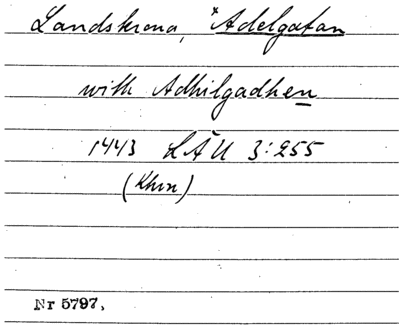 Landskrona, *Adelgatan
with Adhilgadhen
1443 LÄU 3:255
(Khvn)
Nr 5797,